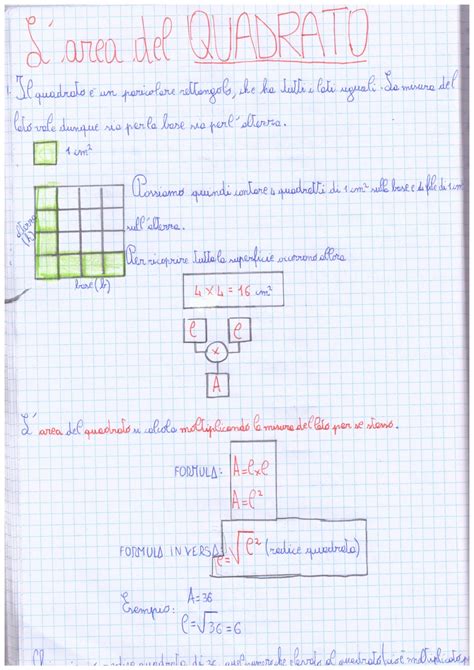 L'area del QUADRATO
Il quadrato è un paricolare rettangolo, che ha tutti i lati uguali. La misura del
lato vale dunque sia per la base sia per l'alterra.
1 cm²
Possiamo quindi contare 4 quadretti di 1 cm² sulla base e 4 file di 1 cm²
sull'alterra.
(h)
Per ricoprire tutta la superficie occorrono allora
base (b)
4 x 4 = 16 cm²
l l
x
A
L'area del quadrato si calcola moltiplicando la misura del lato per se stesso.
FORMULA: A=lxl
A=l²
FORMULA INVERSA: l=√l² (radice quadrata)
Esempio: A=36
l=√36=6